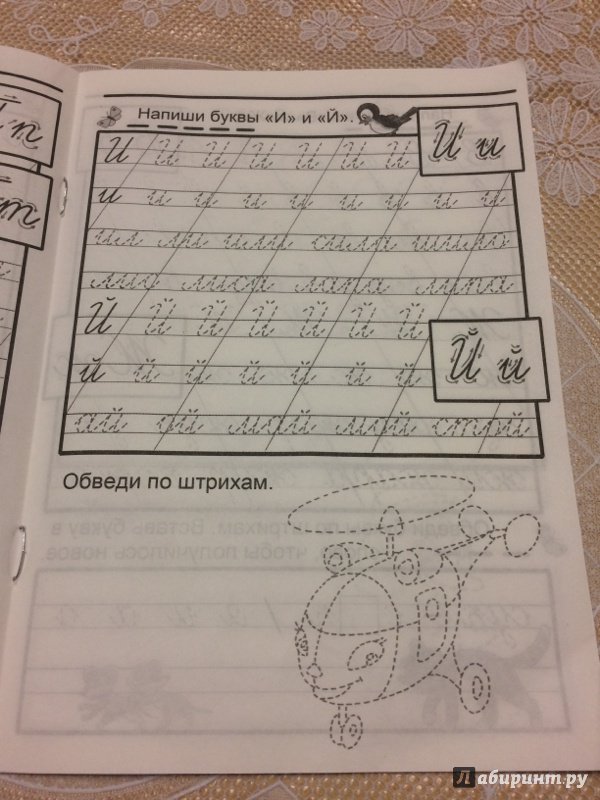 Напиши буквы «И» и «Й».
И И И И И И И И и
и и и и и и и и и
ил ли или сила шило
лиса липа
Й Й Й Й Й Й
Й й
й й й й й й й
ай ой май мой строй
Обведи по штрихам.
Лабиринт.ру